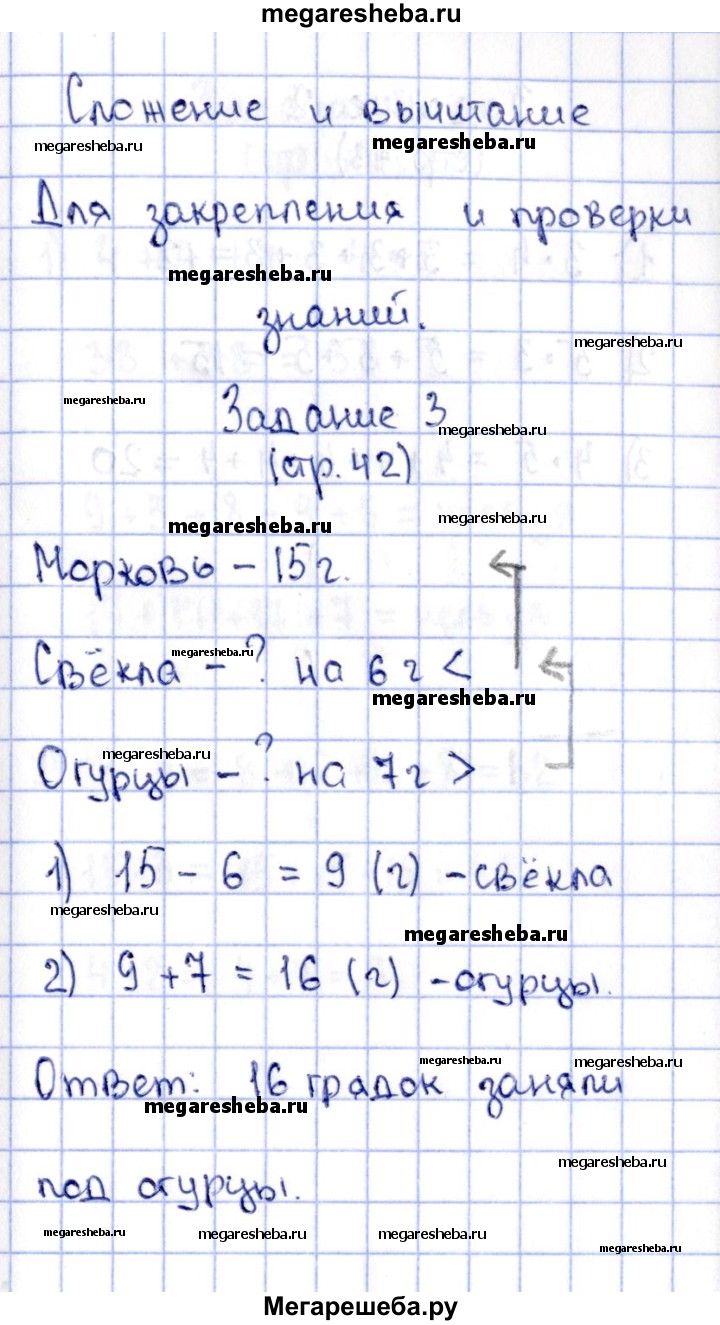 megaresheba.ru
Сложение и вычитание
megaresheba.ru megaresheba.ru
Для закрепления и проверки
megaresheba.ru
знаний.
megaresheba.ru
megaresheba.ru
Задание 3
megaresheba.ru
(стр. 42)
megaresheba.ru megaresheba.ru
Морковь – 15 г.
megaresheba.ru
Свёкла – ? на 6 г <
megaresheba.ru
megaresheba.ru
Огурцы – ? на 7 г >
1) 15 – 6 = 9 (г) – свёкла
megaresheba.ru
megaresheba.ru
2) 9 + 7 = 16 (г) – огурцы.
megaresheba.ru megaresheba.ru
Ответ: 16 грядок заняли
megaresheba.ru
megaresheba.ru
под огурцы.
megaresheba.ru megaresheba.ru megaresheba.ru megaresheba.ru
Мегарешеба.ру